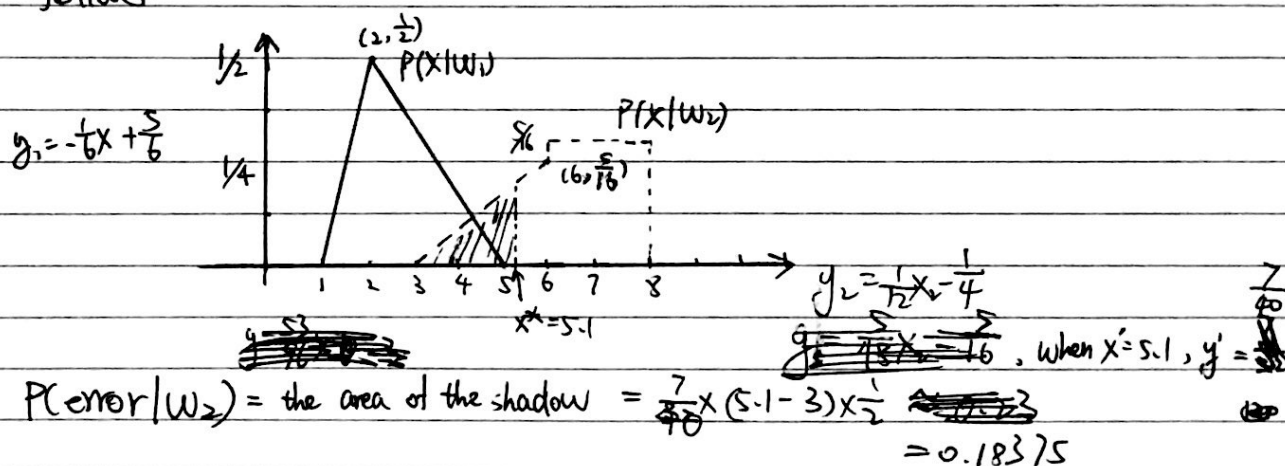 (2, 1/2)
1/2
P(X|W₁)
P(X|W₂)
y₁ = -1/6 X + 5/6
5/16
1/4
(6, 5/16)
1 2 3 4 5 6 7 8
x* = 5.1
y₂ = 1/12 X₂ - 1/4
7/40
, when x' = 5.1, y' =
P(error|W₂) = the area of the shadow = 7/40 × (5.1 - 3) × 1/2
= 0.18375